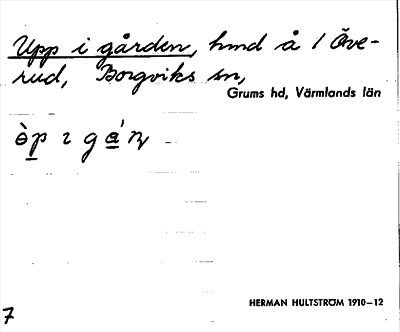 Upp i gården, hmd å 1 Öve-
rud, Borgviks sn,
Grums hd, Värmlands län
HERMAN HULTSTRÖM 1910–12
7